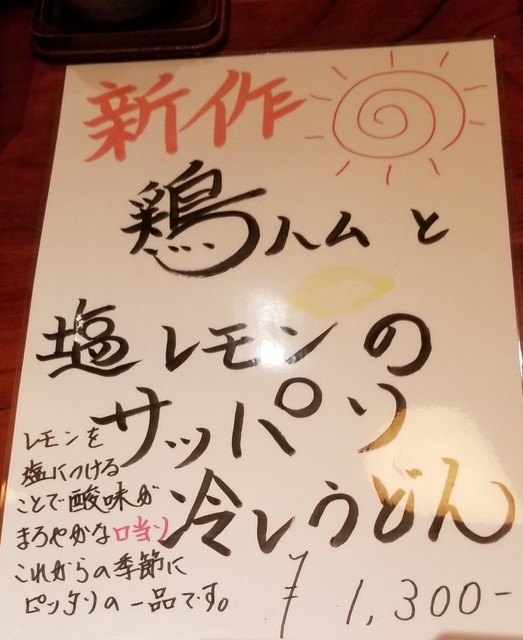 新作
鶏ハムと
塩レモンの
サッパリ
冷しうどん
レモンを
塩につける
ことで酸味が
まろやかな口当り
これからの季節に
ピッタリの一品です。
¥1,300-